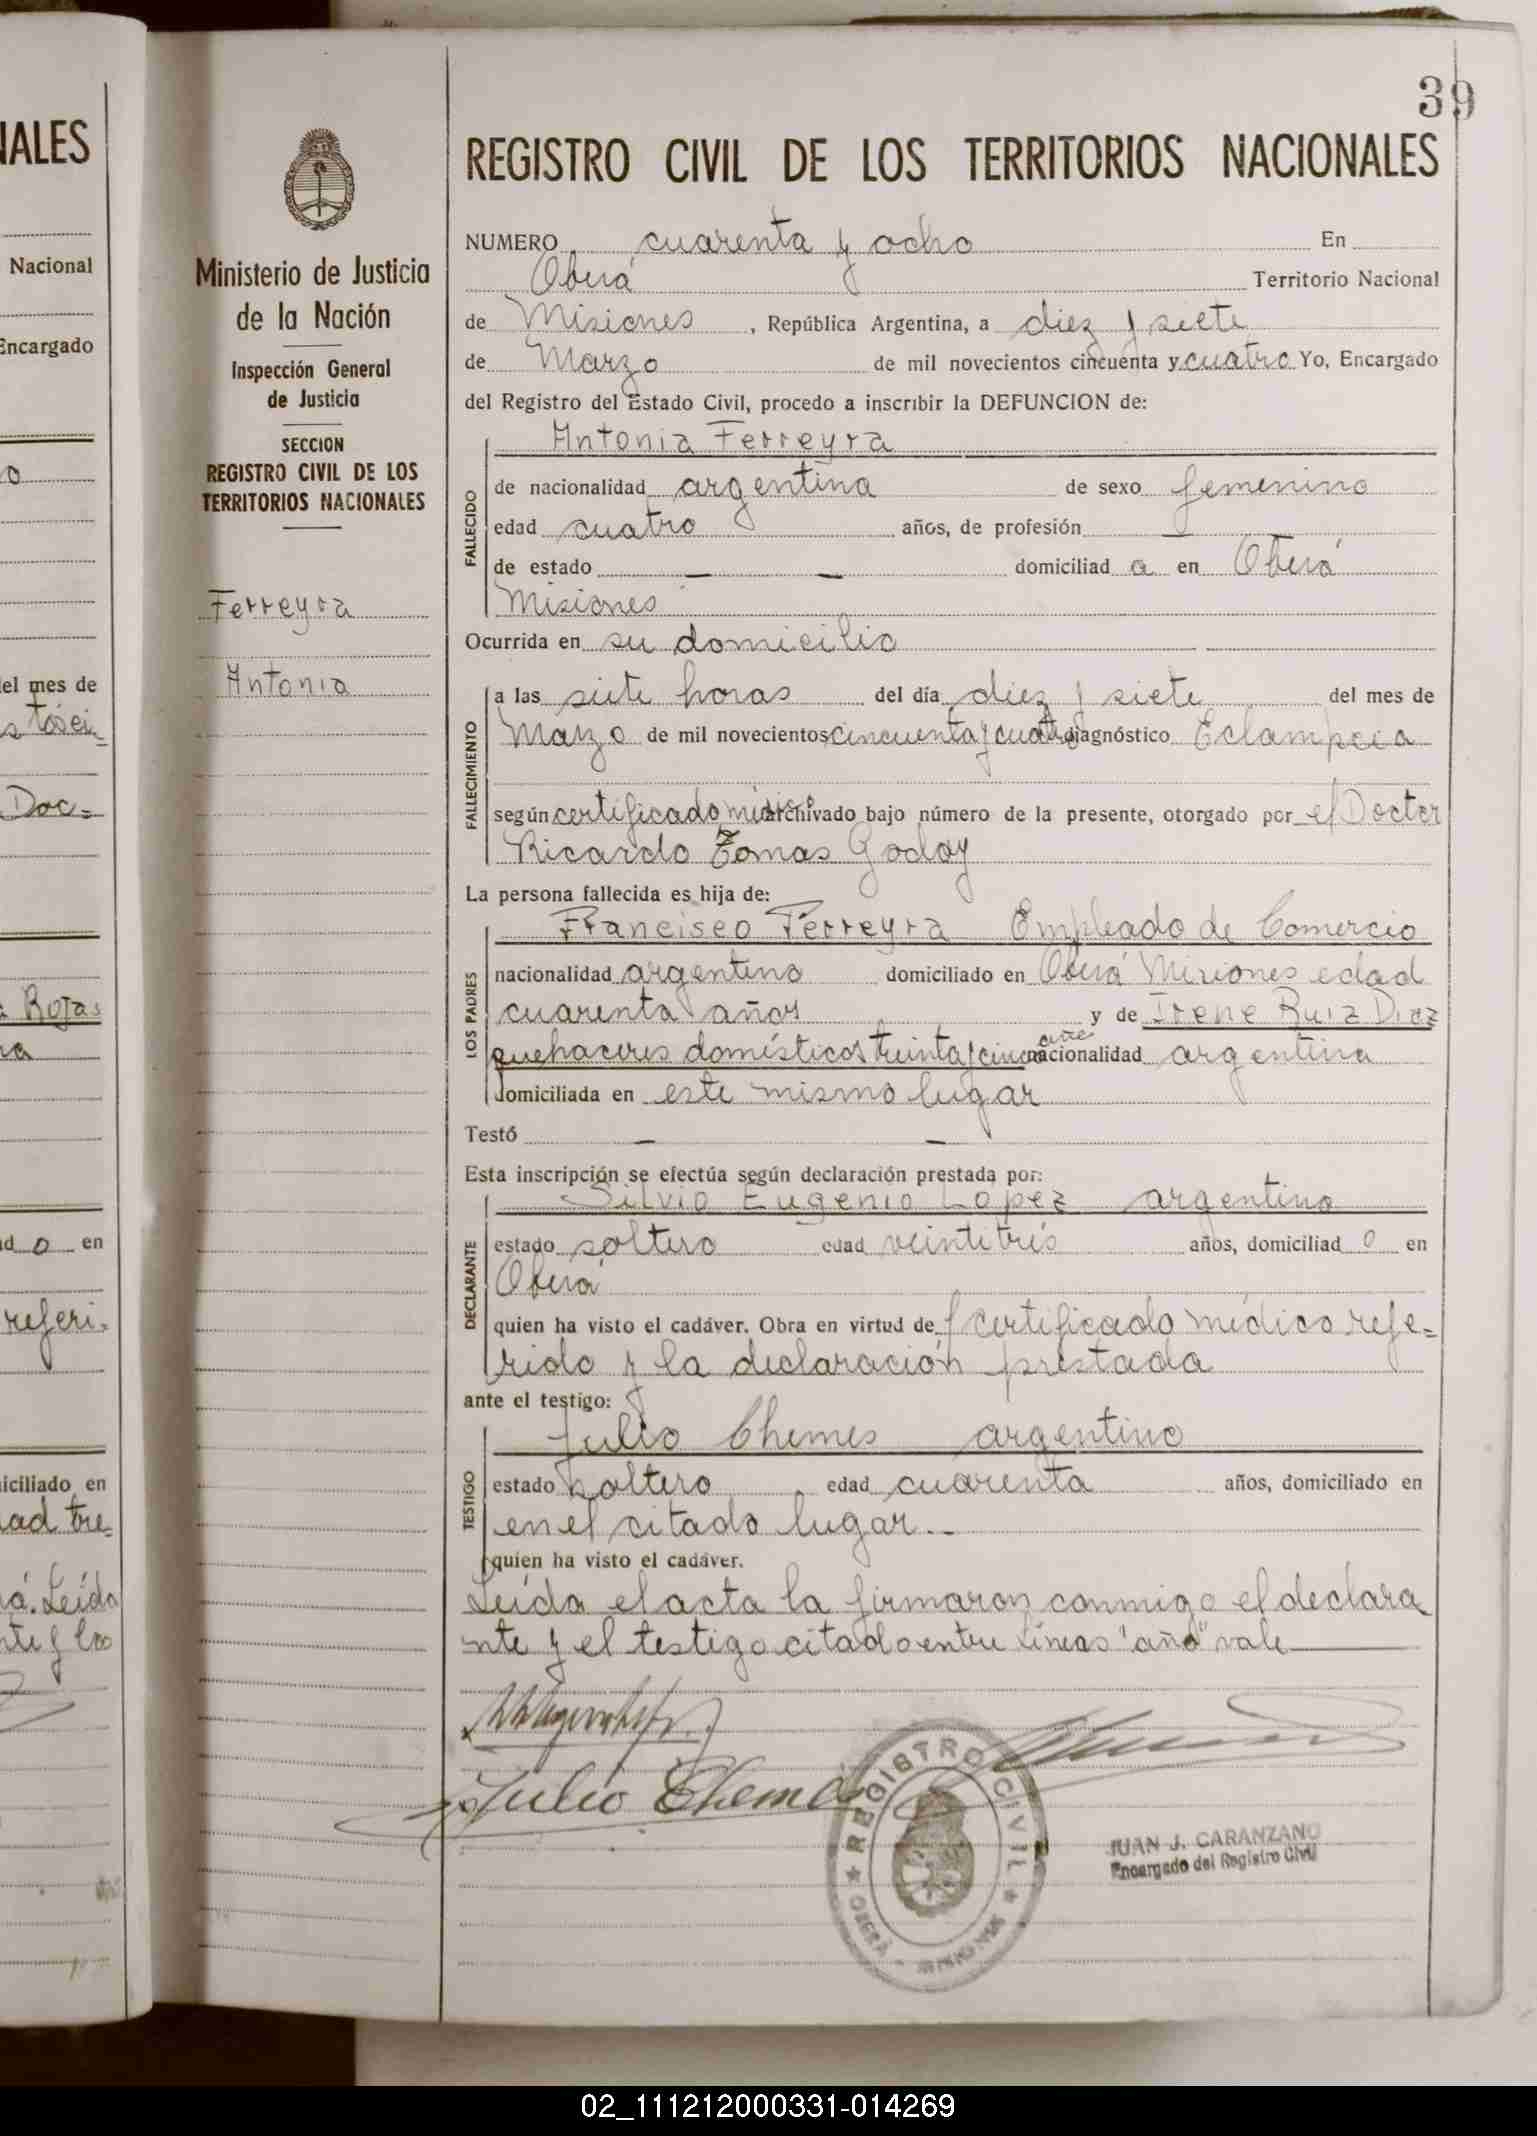 39
REGISTRO CIVIL DE LOS TERRITORIOS NACIONALES
Ministerio de Justicia
de la Nación
Inspección General
de Justicia
SECCION
REGISTRO CIVIL DE LOS
TERRITORIOS NACIONALES
Ferreyra
Antonia
NUMERO cuarenta y ocho En
Oberá Territorio Nacional
de Misiones, República Argentina, a diez y siete
de Marzo de mil novecientos cincuenta y cuatro Yo, Encargado
del Registro del Estado Civil, procedo a inscribir la DEFUNCION de:
FALLECIDO
Antonia Ferreyra
de nacionalidad argentina de sexo femenino
edad cuatro años, de profesión —
de estado — — domiciliad a en Oberá
Misiones
Ocurrida en su domicilio
FALLECIMIENTO
a las siete horas del día diez y siete del mes de
Marzo de mil novecientos cincuenta y cuatro diagnóstico Eclampcia
según certificado médico archivado bajo número de la presente, otorgado por el Doctor
Ricardo Tomas Godoy
La persona fallecida es hija de:
LOS PADRES
Francisco Ferreyra Empleado de Comercio
nacionalidad argentino domiciliado en Oberá Misiones edad
cuarenta años y de Irene Ruiz Diaz
años
quehaceres domésticos treinta y cinco nacionalidad argentina
domiciliada en este mismo lugar
Testó — —
Esta inscripción se efectúa según declaración prestada por:
DECLARANTE
Silvio Eugenio Lopez argentino
estado soltero edad veintitrés años, domiciliad o en
Oberá
quien ha visto el cadáver. Obra en virtud del certificado médico refe=
rido y la declaración prestada
ante el testigo:
TESTIGO
Julio Chemes argentino
estado soltero edad cuarenta años, domiciliado en
en el citado lugar.-
quien ha visto el cadáver.
Leída el acta la firmaron conmigo el declara
nte y el testigo citado entre líneas "año" vale
Julio Chemes
REGISTRO CIVIL
OBERÁ
JUAN J. CARANZANO
Encargado del Registro Civil
NALES
Nacional
Encargado
del mes de
Doc=
Rojas
ad o en
referi-
miciliado en
Leída
02_111212000331-014269